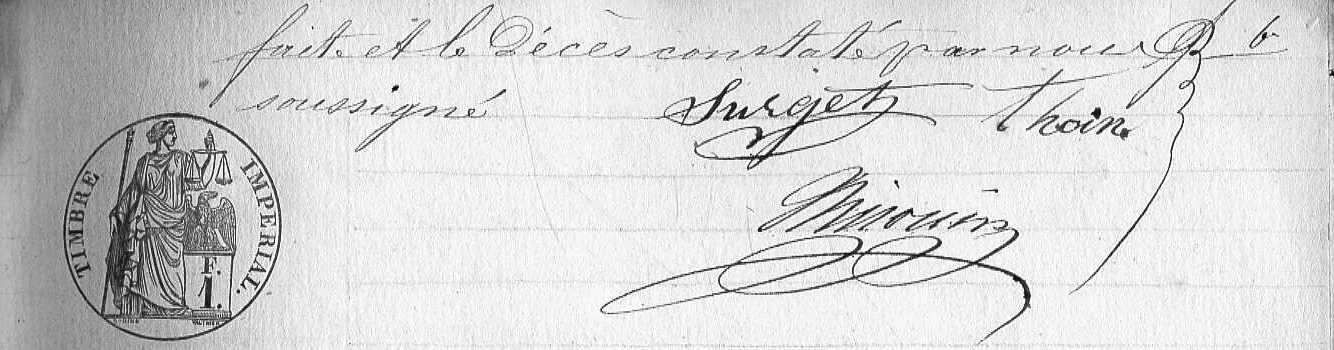 faite et le Décès constaté par nous
soussigné Surget Thoin
TIMBRE IMPERIAL.
F.
1.